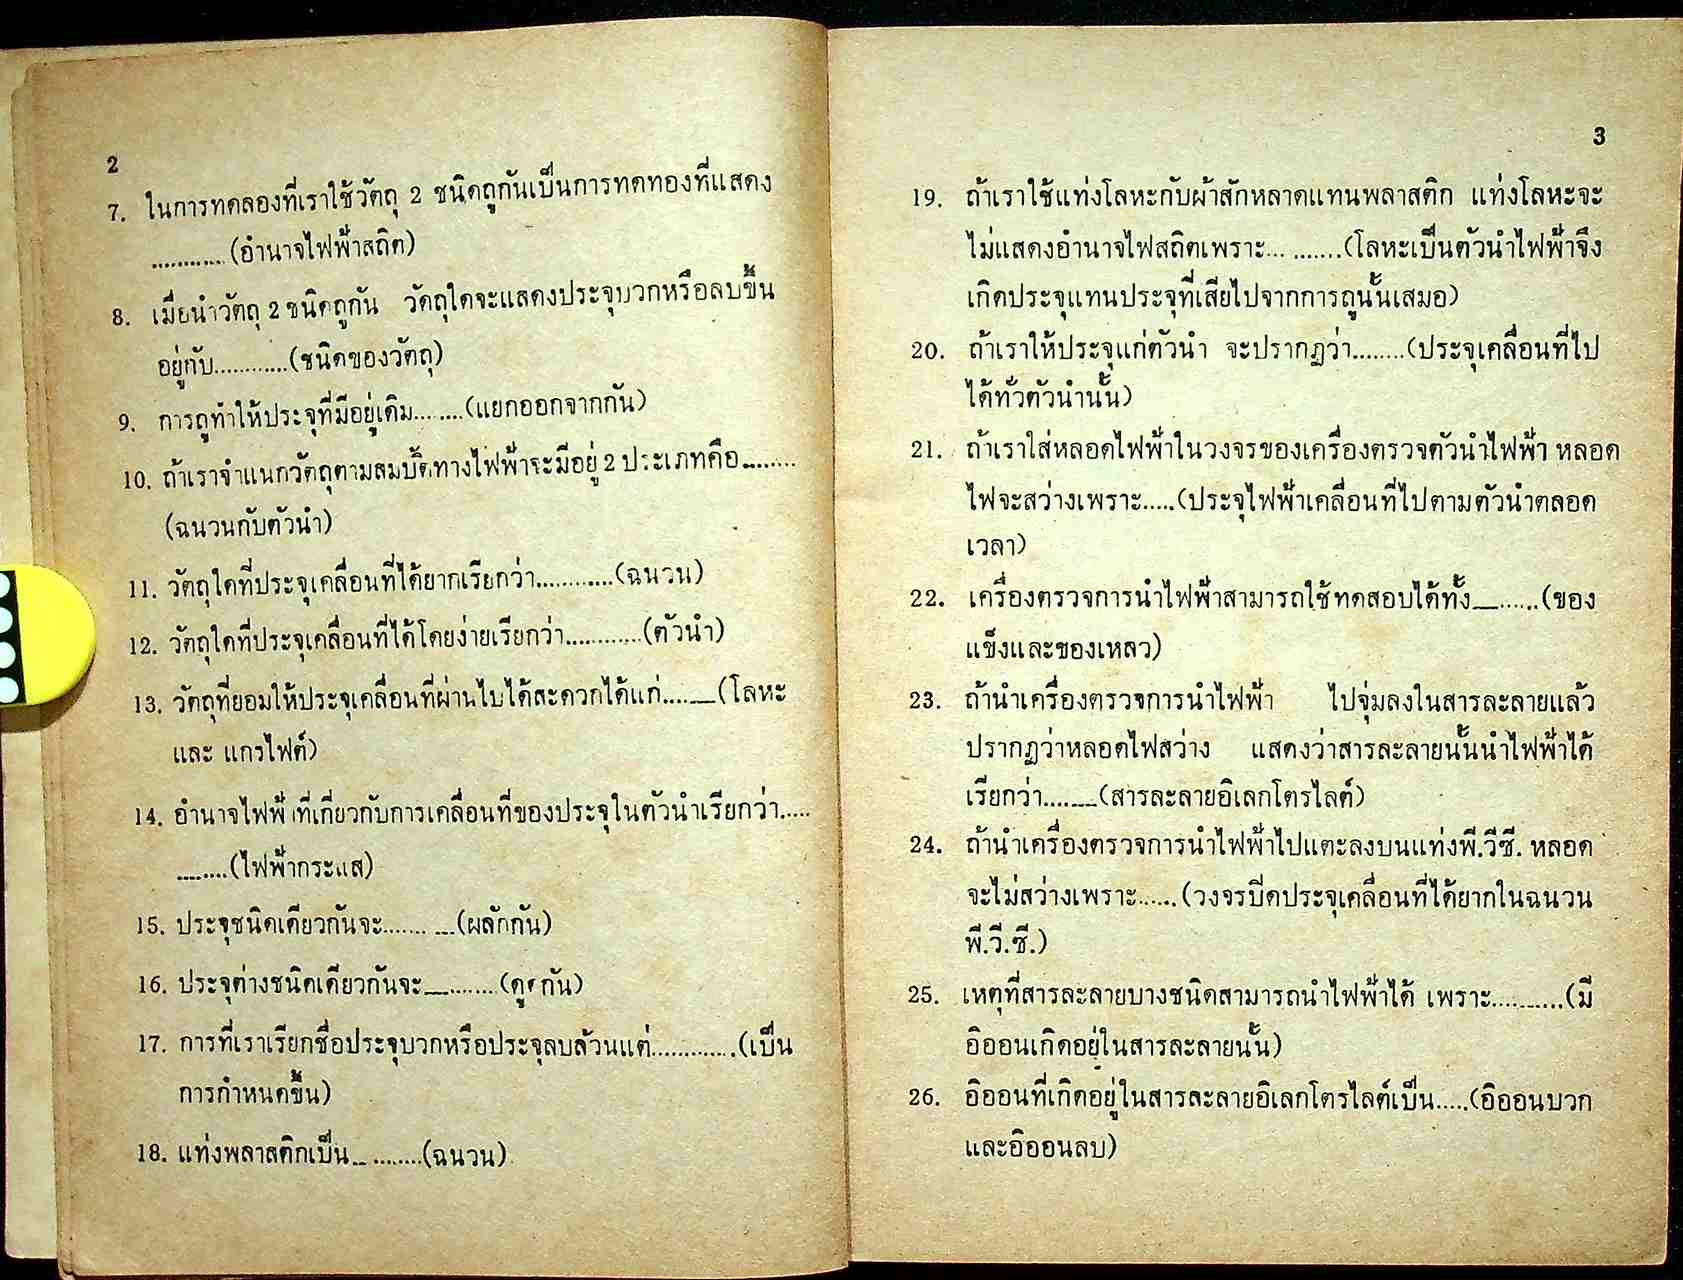 2
7. ในการทดลองที่เราใช้วัตถุ 2 ชนิดถูกันเป็นการทดทองที่แสดง
............(อำนาจไฟฟ้าสถิต)
8. เมื่อนำวัตถุ 2 ชนิดถูกัน วัตถุใดจะแสดงประจุบวกหรือลบขึ้น
อยู่กับ............(ชนิดของวัตถุ)
9. การถูทำให้ประจุที่มีอยู่เดิม........(แยกออกจากกัน)
10. ถ้าเราจำแนกวัตถุตามสมบัติทางไฟฟ้าจะมีอยู่ 2 ประเภทคือ.........
(ฉนวนกับตัวนำ)
11. วัตถุใดที่ประจุเคลื่อนที่ได้ยากเรียกว่า............(ฉนวน)
12. วัตถุใดที่ประจุเคลื่อนที่ได้โดยง่ายเรียกว่า............(ตัวนำ)
13. วัตถุที่ยอมให้ประจุเคลื่อนที่ผ่านไปได้สะดวกได้แก่........(โลหะ
และ แกรไฟต์)
14. อำนาจไฟฟ้าที่เกี่ยวกับการเคลื่อนที่ของประจุในตัวนำเรียกว่า.....
........(ไฟฟ้ากระแส)
15. ประจุชนิดเดียวกันจะ..........(ผลักกัน)
16. ประจุต่างชนิดเดียวกันจะ..........(ดูดกัน)
17. การที่เราเรียกชื่อประจุบวกหรือประจุลบล้วนแต่.............(เป็น
การกำหนดขึ้น)
18. แท่งพลาสติกเป็น..........(ฉนวน)
3
19. ถ้าเราใช้แท่งโลหะกับผ้าสักหลาดแทนพลาสติก แท่งโลหะจะ
ไม่แสดงอำนาจไฟสถิตเพราะ... .......(โลหะเป็นตัวนำไฟฟ้าจึง
เกิดประจุแทนประจุที่เสียไปจากการถูนั้นเสมอ)
20. ถ้าเราให้ประจุแก่ตัวนำ จะปรากฏว่า........(ประจุเคลื่อนที่ไป
ได้ทั่วตัวนำนั้น)
21. ถ้าเราใส่หลอดไฟฟ้าในวงจรของเครื่องตรวจตัวนำไฟฟ้า หลอด
ไฟจะสว่างเพราะ.....(ประจุไฟฟ้าเคลื่อนที่ไปตามตัวนำตลอด
เวลา)
22. เครื่องตรวจการนำไฟฟ้าสามารถใช้ทดสอบได้ทั้ง........(ของ
แข็งและของเหลว)
23. ถ้านำเครื่องตรวจการนำไฟฟ้า ไปจุ่มลงในสารละลายแล้ว
ปรากฏว่าหลอดไฟสว่าง แสดงว่าสารละลายนั้นนำไฟฟ้าได้
เรียกว่า........(สารละลายอิเลกโตรไลต์)
24. ถ้านำเครื่องตรวจการนำไฟฟ้าไปแตะลงบนแท่งพี.วีซี. หลอด
จะไม่สว่างเพราะ......(วงจรปิดประจุเคลื่อนที่ได้ยากในฉนวน
พี.วี.ซี.)
25. เหตุที่สารละลายบางชนิดสามารถนำไฟฟ้าได้ เพราะ..........(มี
อิออนเกิดอยู่ในสารละลายนั้น)
26. อิออนที่เกิดอยู่ในสารละลายอิเลกโตรไลต์เป็น.....(อิออนบวก
และอิออนลบ)